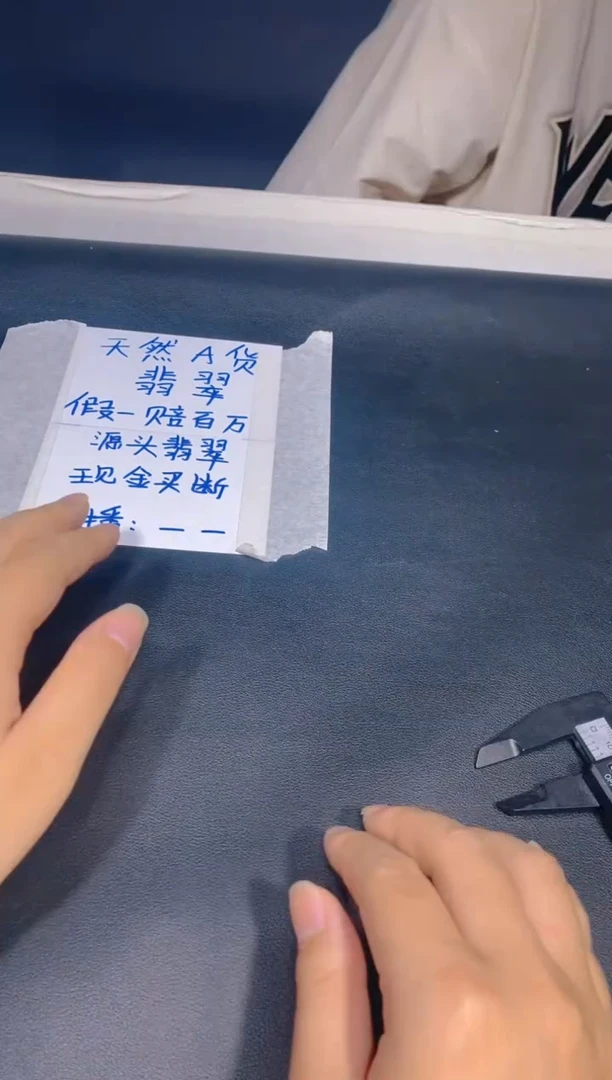 天然A货
翡翠
假一赔百万
源头翡翠
现金买断
播：一一